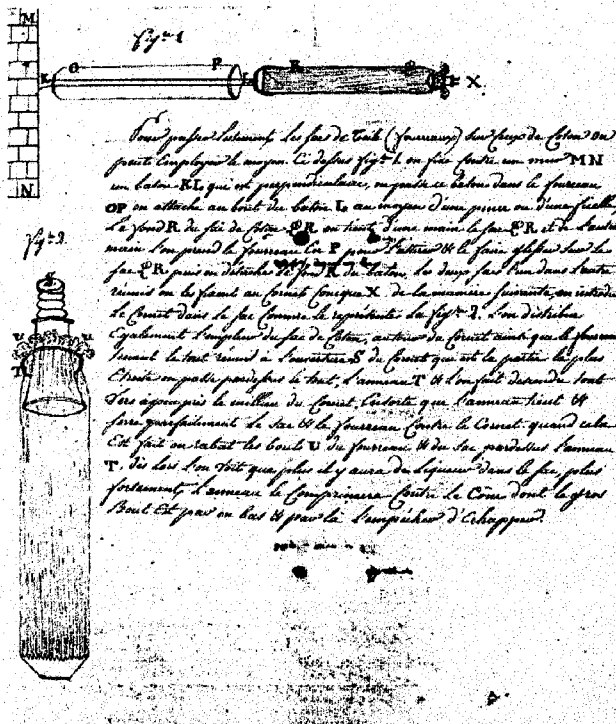 M
Fig.re 1
O P R
K L X
N
Pour passer les sacs de Toile (fourreaux) sur ceux de Coton on
peut employer le moyen Ci dessus fig.re 1. on fixe Contre un mur MN
un baton KL qui est perpendiculaire, on passe ce bâton dans le fourreau
OP on attache au bout du baton L au moyen d'une pince ou d'une ficelle
Le fond R du sac de Coton QR on tient d'une main le sac QR et de l'autre
main l'on prend le fourreau en P pour l'attirer & le faire glisser sur le
sac QR puis on détache le fond R du baton, les deux sacs l'un dans l'autre
réunis on les fixent au Cornet Conique X de la maniere suivante, on introduit
Le Cornet dans le sac Comme le représente la fig.re 2. l'on distribue
Egalement l'ampleur du sac de Coton, autour du Cornet ainsi que le fourreau
tenant le tout réuni à l'ouverture S du Cornet qui est la partie la plus
Etroite on passe pardessus le tout, l'anneau T & l'on fait descendre tout
Vers à peu près le milieu du Cornet, Ensorte que l'anneau tient &
serre parfaitement le sac & le fourreau Contre le Cornet quand cela
Est fait on rabat les bouts U du fourreau & du sac pardessus l'anneau
T. dès lors l'on voit que plus il y aura de liqueur dans le sac, plus
fortement l'anneau le Comprimera Contre le Cône dont le gros
Bout Est par en bas & par là l'empêcher d'Echapper.
Fig.re 2
S
U U
T